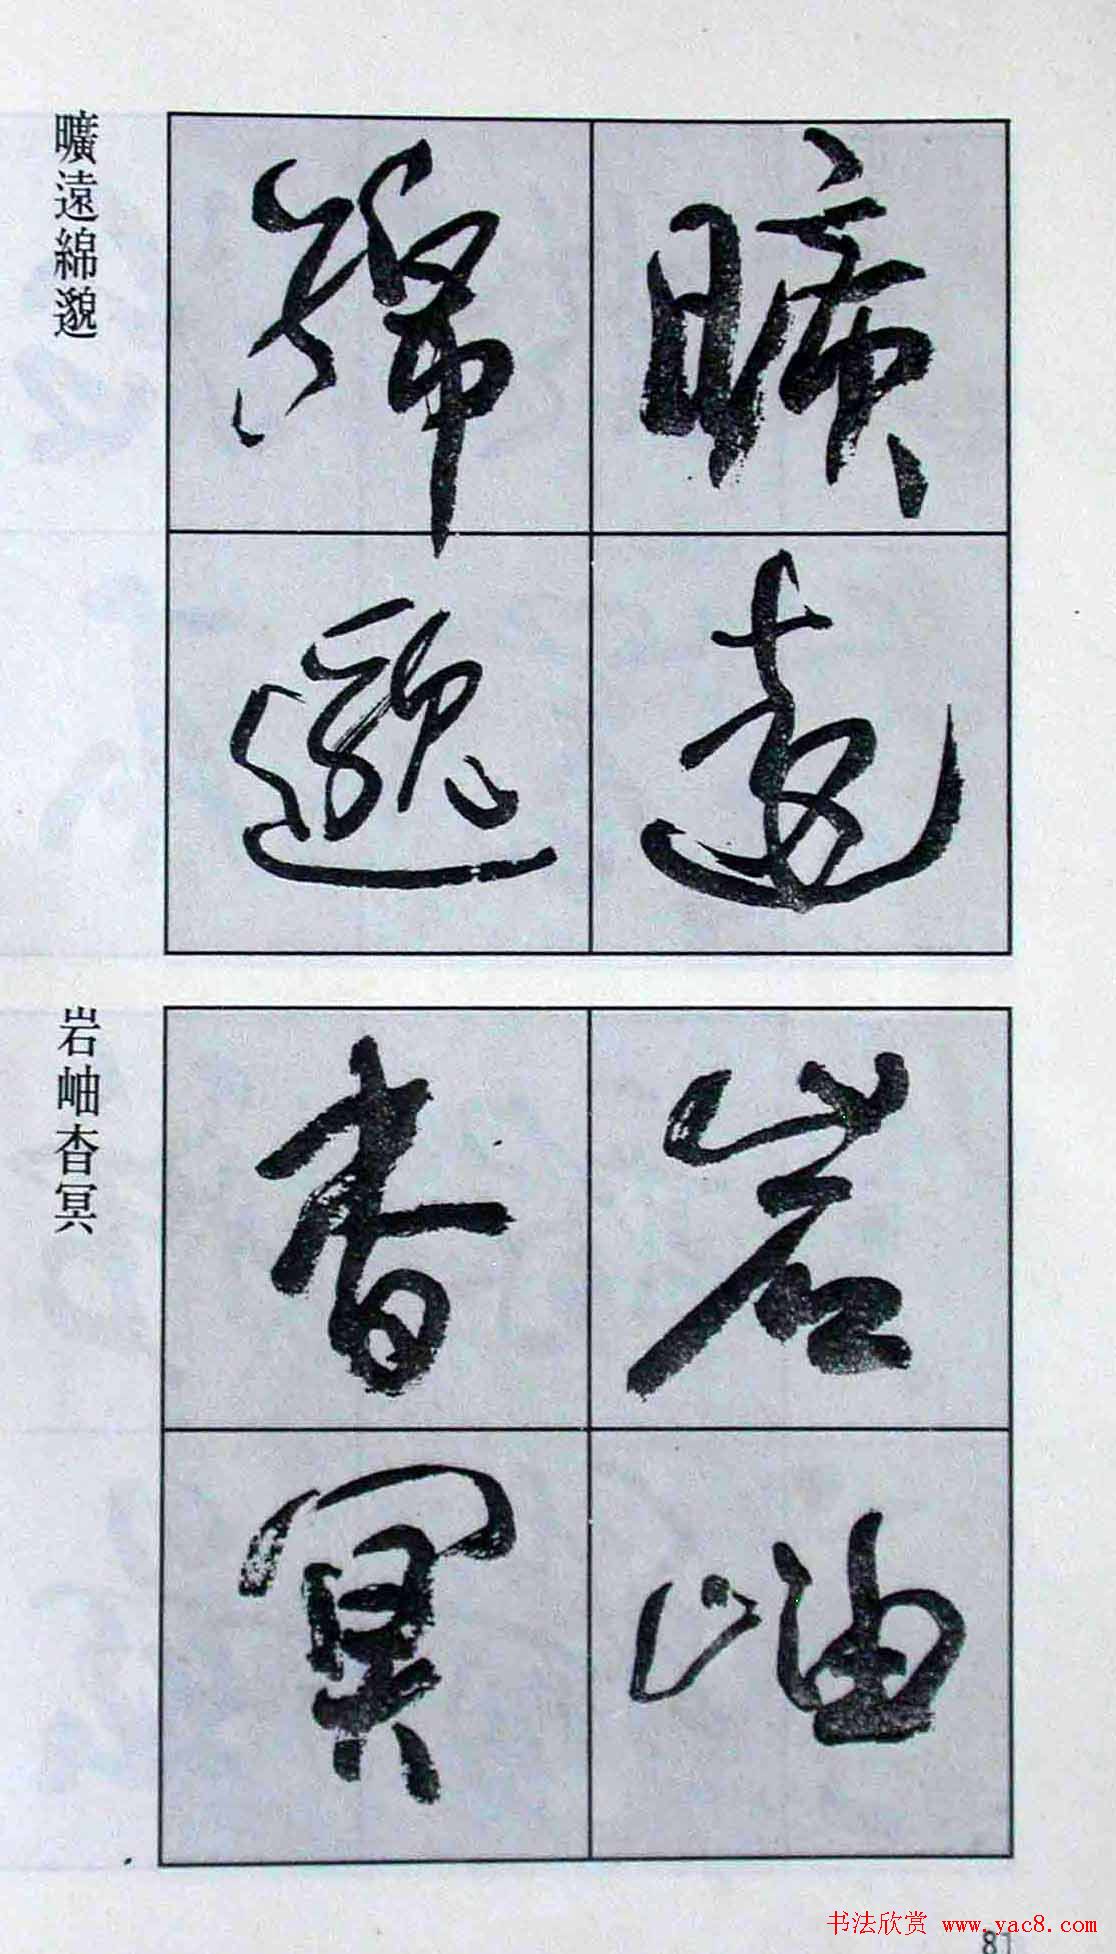 曠遠
綿邈
曠遠綿邈
岩岫
杳冥
岩岫杳冥
书法欣赏 www.yac8.com
81